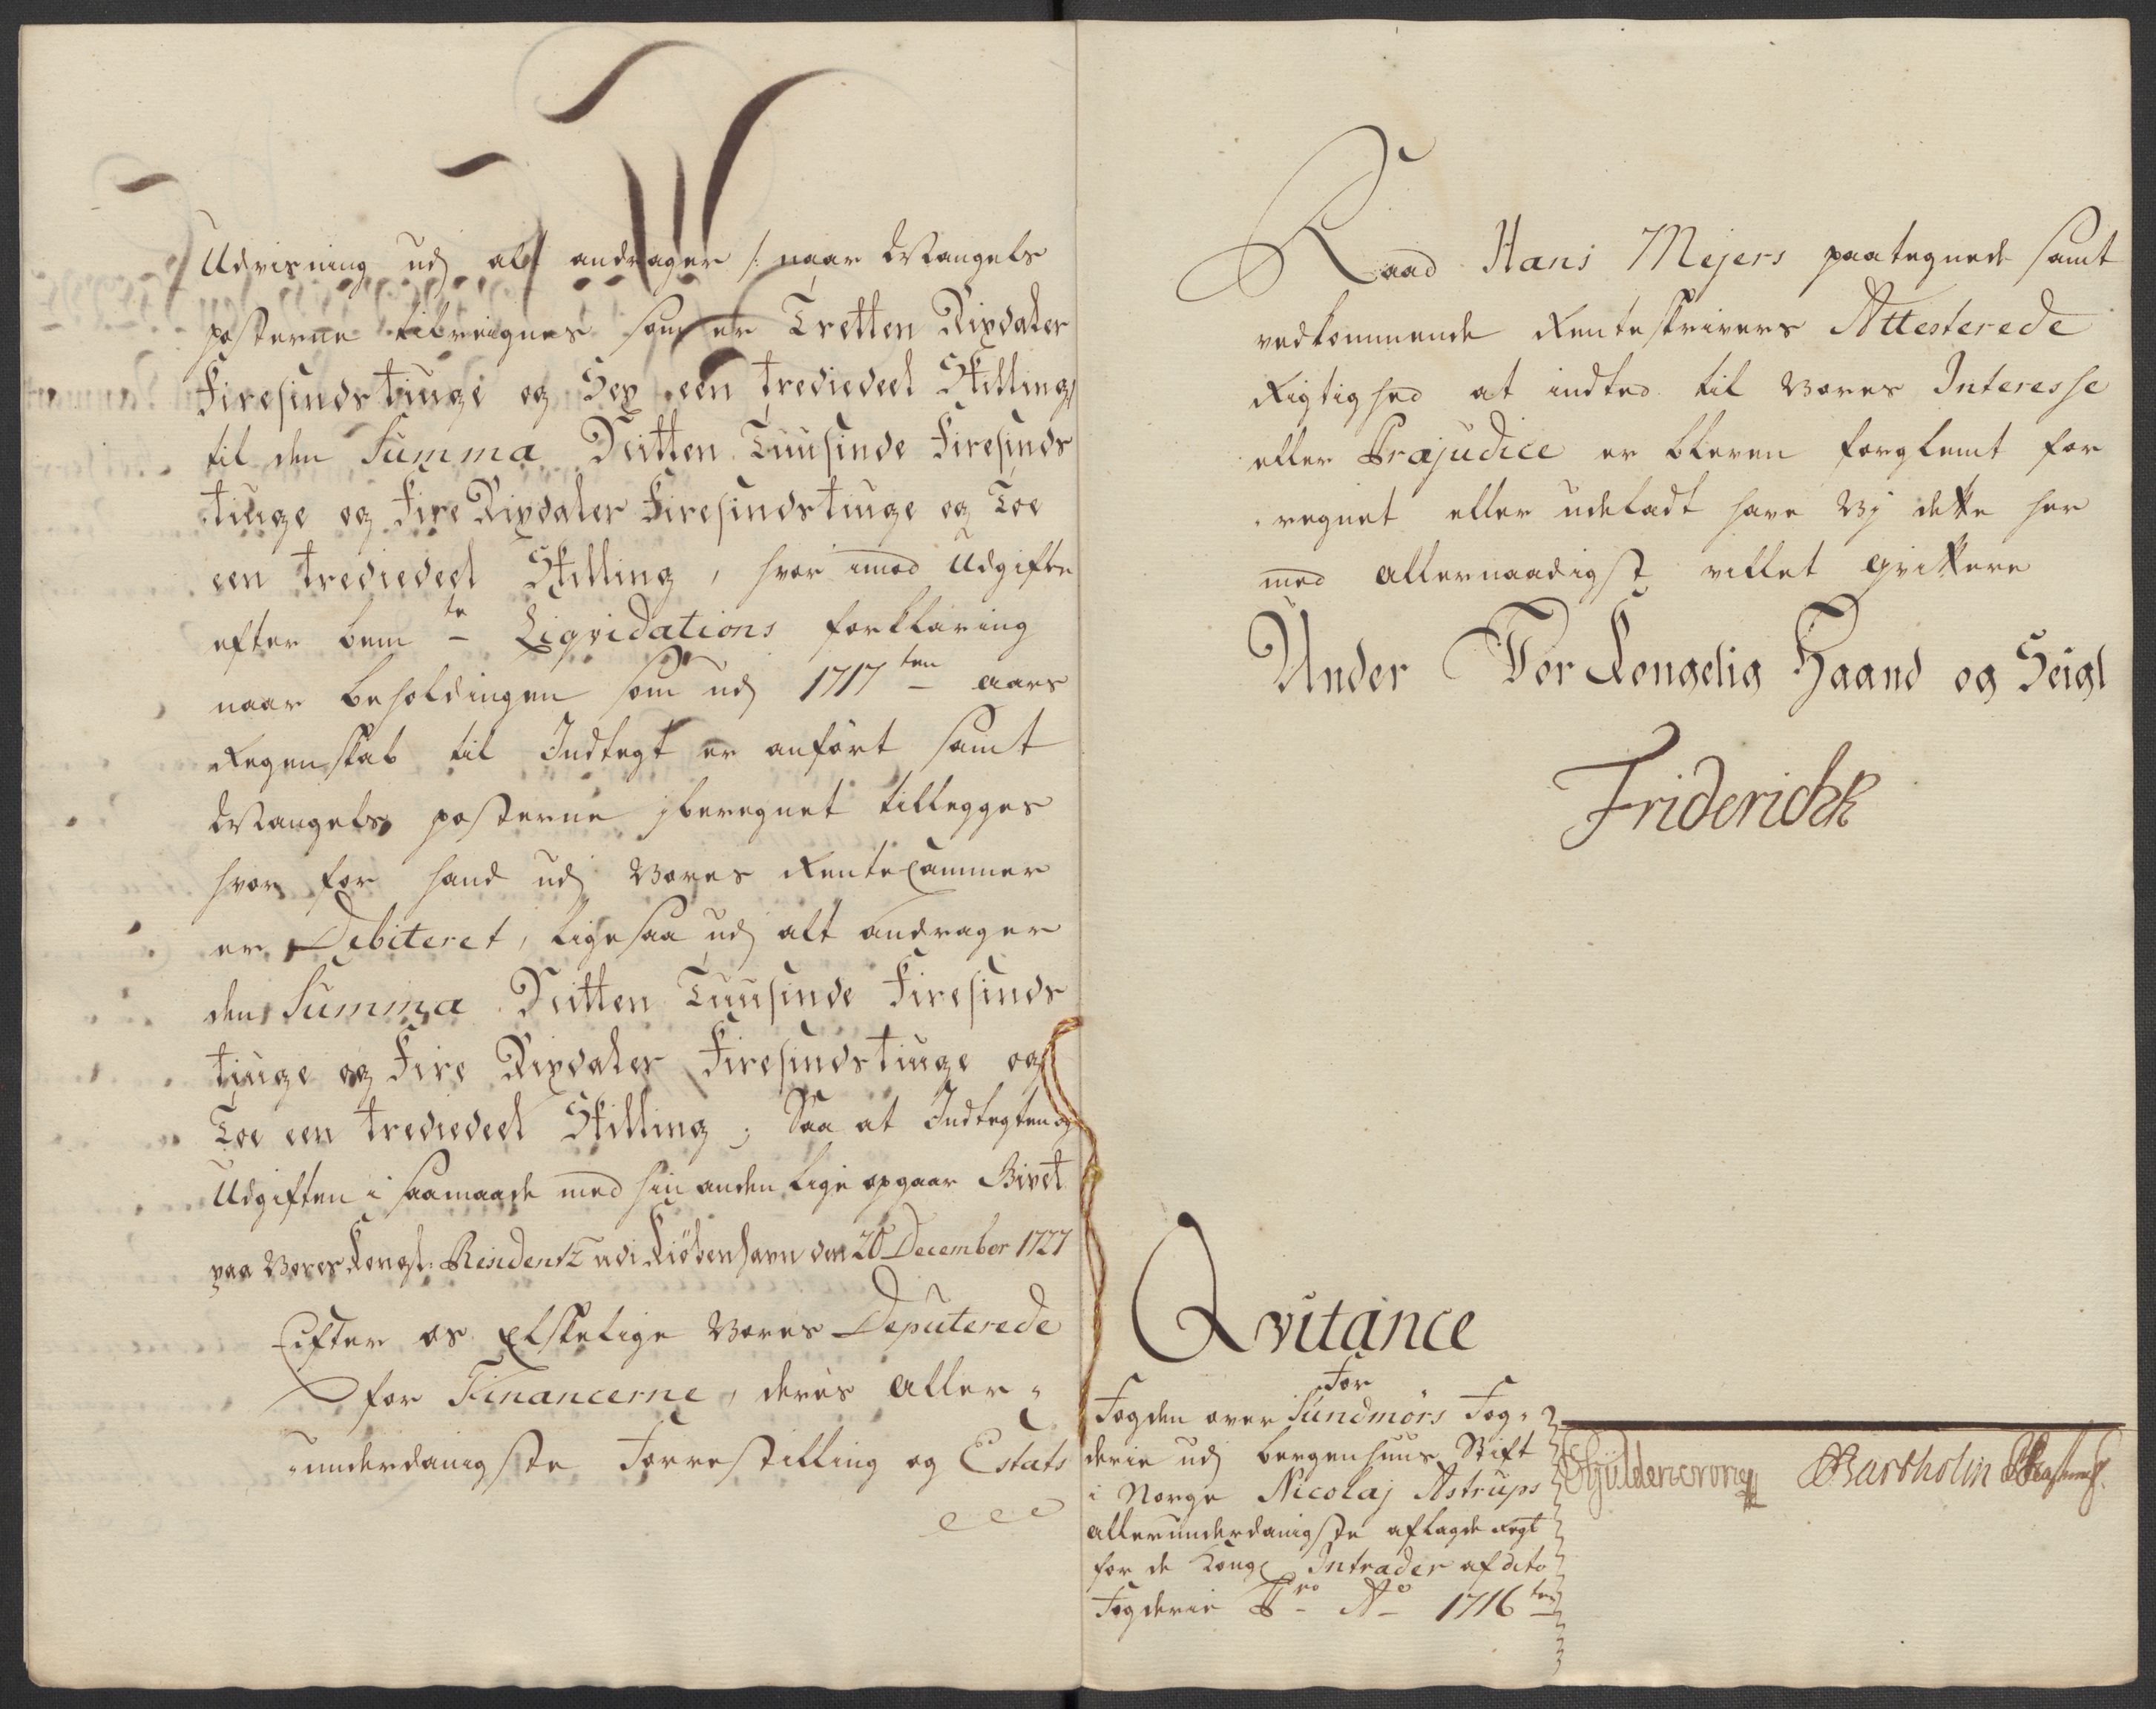 Udvisning udj alt andrager /: naar Mangels
posterne tilreignes som er Tretten Rixdaler
Firesindstiuge og Sex een trediedeel Skilling/
til den Summa Nitten Tuusinde Firesinds
tiuge og Fire Rixdaler Firesindstiuge og Toe
een trediedeel Skilling, hvor imod Udgiften
efter bem.te Liqvidations forklaring
naar beholdingen som udj 1717ten aars
Regenskab til Indtegt er anført samt
Mangels posterne j beregnet tillegges
hvor for hand udj Vores RenteCammer
er Debiteret, ligesaa udj alt andrager
den Summa Nitten Tuusinde Firesinds
tiuge og Fire Rixdaler Firesindstiuge og
Toe een trediedeel Skilling; Saa at Indtegten og
Udgiften i saamaade med hin anden lige opgaar Givet
paa Vores Kongl: Residentz udi Kiöbenhavn den 20 December 1727
Efter os Elskelige Vores Deputerede
for Financerne, deres aller-
underdanigste Forrestilling og Estats
Raad Hans Mejers paategnede samt
vedkommende Renteskrivers Attesterede
Rigtighed at indted til Vores Interesse
eller Præjudice er bleven forglemt for
regnet eller udeladt have Vj dette her
med allernaadigst villet qvittere
Under Vor Kongelig Haand og Seigl
Friderich R
Qvitance
For
Fogden over Sundmörs Fog-
derie udj bergenhuus Stift
i Norge Nicolaj Astrups
allerunderdanigste aflagde Regt
for de Kongl Intrader af dito
Fogderie Pro Ao 1716ten
CGüldencrone Bartholin